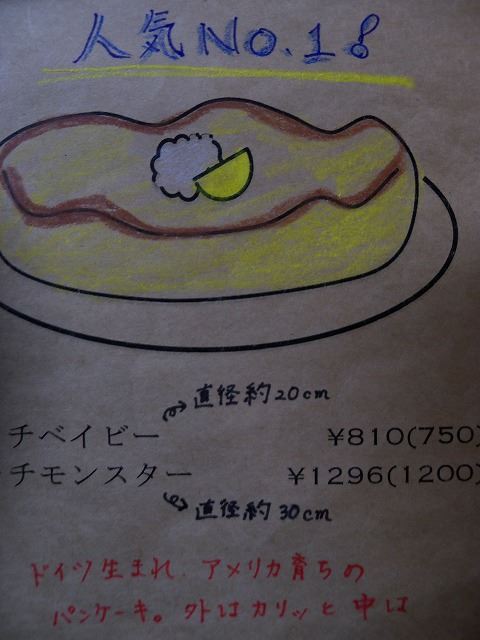 人気No.1!
直径約20cm
チベイビー ¥810(750)
チモンスター ¥1296(1200)
直径約30cm
ドイツ生まれ、アメリカ育ちの
パンケーキ。外はカリッと 中は